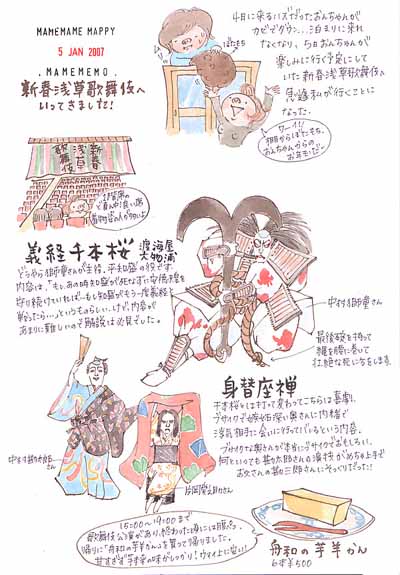 MAMEMAME MAPPY
5 JAN 2007
.MAMEMEMO.
新春浅草歌舞伎へ
いってきました!
4日に来るハズだったおんちゃんが
カゼでダウン…泊まりに来れ
なくなり、5日おんちゃんが
楽しみに行く予定にして
いた新春浅草歌舞伎へ
急遽私が行くことに
なった。
ぼたもち
ワーイ!
棚からぼたもち。
おんちゃんからの
お年玉だー
新春
浅草
歌舞伎
義経千本桜
渡海屋
大物浦
どうやら獅童さんが主役、平知盛の役です。
内容は、「もし、あの時知盛が死なずに安徳帝を
守り続けていれば…もし知盛がもう一度義経と
戦ったら…」というものらしい…けど、内容が
あまりに難しいので解説は必見でした。
中村獅童さん
最後碇を持って
縄を腰に巻いて
壮絶な死に方をします。
身替座禅
千本桜とはうって変わってこちらは喜劇。
ブサイクで嫉妬深い奥さんに内緒で
浮気相手に会いに行ってバレるという内容。
ブサイクな奥さんが本当にブサイクでおもしろい。
何といっても勘太郎さんの演技がある上手で
お父さんの勘三郎さんにそっくりだった!
中村勘太郎
さん
片岡愛之助さん
15:00〜19:00まで
歌舞伎公演があり、終わった頃には腹ペコ。
帰りに「舟和の芋ようかん」を買って帰りました。
甘すぎず芋本来の味がしっかり!ウマイ上に安い!
舟和の芋羊かん
6本¥500